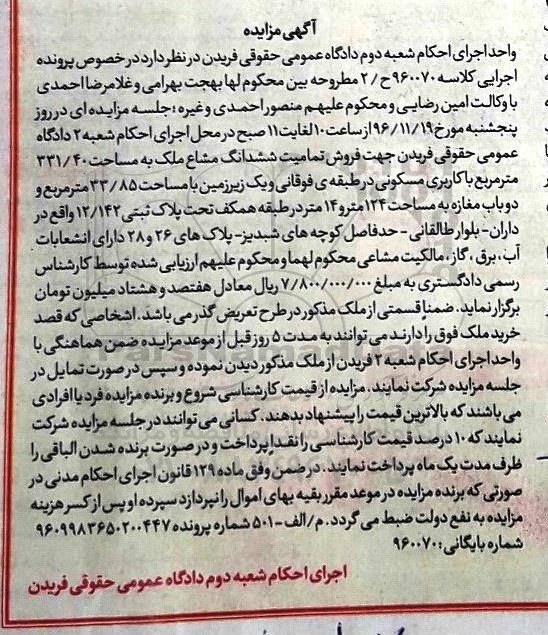 آگهی مزایده
واحد اجرای احکام شعبه دوم دادگاه عمومی حقوقی فریدن در نظر دارد در خصوص پرونده
اجرایی کلاسه ۹۶۰۰۷۰ح/۲ مطروحه بین محکوم لها بهجت بهرامی و غلامرضا احمدی
با وکالت امین رضایی و محکوم علیهم منصور احمدی و غیره؛ جلسه مزایده ای در روز
پنجشنبه مورخ ۹۶/۱۱/۱۹ از ساعت ۱۰ لغایت ۱۱ صبح در محل اجرای احکام شعبه ۲ دادگاه
عمومی حقوقی فریدن جهت فروش تمامیت ششدانگ مشاع ملک به مساحت ۳۳۱/۴۰
مترمربع با کاربری مسکونی در طبقه ی فوقانی و یک زیرزمین با مساحت ۳۳/۸۵ مترمربع و
دو باب مغازه به مساحت ۱۲۴ مترو ۱۴ متر در طبقه همکف تحت پلاک ثبتی ۱۲/۱۴۲ واقع در
داران- بلوار طالقانی - حدفاصل کوچه های شبدیز- پلاک های ۲۶ و ۲۸ دارای انشعابات
آب، برق، گاز، مالکیت مشاعی محکوم لهما و محکوم علیهم ارزیابی شده توسط کارشناس
رسمی دادگستری به مبلغ ۷/۸۰۰/۰۰۰/۰۰۰ ریال معادل هفتصد و هشتاد میلیون تومان
برگزار نماید. ضمنا قسمتی از ملک مذکور در طرح تعریض گذر می باشد. اشخاصی که قصد
خرید ملک فوق را دارند می توانند به مدت ۵ روز قبل از موعد مزایده ضمن هماهنگی با
واحد اجرای احکام شعبه ۲ فریدن از ملک مذکور دیدن نموده و سپس در صورت تمایل در
جلسه مزایده شرکت نمایند. مزایده از قیمت کارشناسی شروع و برنده مزایده فرد یا افرادی
می باشند که بالاترین قیمت را پیشنهاد بدهند. کسانی می توانند در جلسه مزایده شرکت
نمایند که ۱۰ درصد قیمت کارشناسی را نقدا پرداخت و در صورت برنده شدن الباقی را
ظرف مدت یک ماه پرداخت نمایند. در ضمن وفق ماده ۱۲۹ قانون اجرای احکام مدنی در
صورتی که برنده مزایده در موعد مقرر بقیه بهای اموال را نپردازد سپرده او پس از کسر هزینه
مزایده به نفع دولت ضبط می گردد. م/الف-۵۰۱ شماره پرونده ۹۶۰۹۹۸۳۶۵۰۲۰۰۴۴۷
شماره بایگانی: ۹۶۰۰۷۰
اجرای احکام شعبه دوم دادگاه عمومی حقوقی فریدن